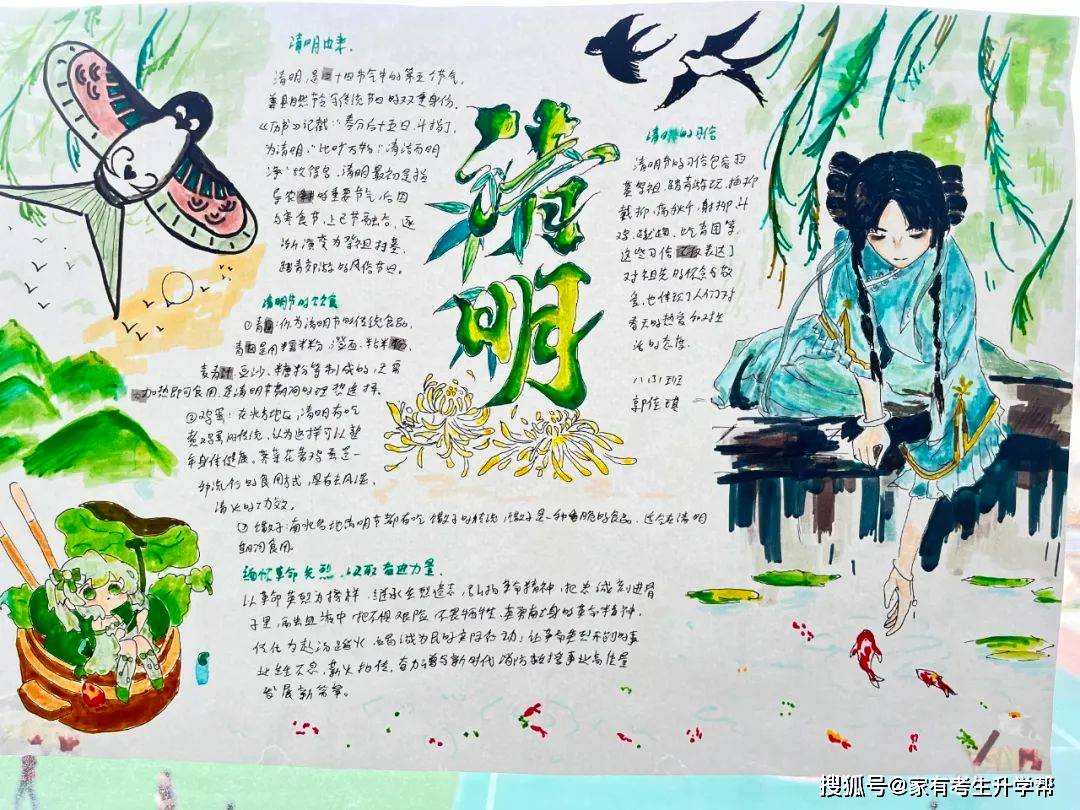 清明由来.
清明,是二十四节气中的第五个节气,
兼具自然节气与传统节日的双重身份,
《历书》记载:"春分后十五日,斗指丁,
为清明,"此时万物"清洁而明
净"故得名,清明最初是指
导农耕的重要节气,后因
与寒食节、上巳节融合,逐
渐演变为祭祖扫墓、
踏青郊游的风俗节日。
清明
清明的习俗
清明节的习俗包括扫
墓祭祖、踏青游玩、插柳
戴柳,荡秋千,射柳,斗
鸡、吃青团等,
这些习俗表达了
对祖先的怀念与敬
意,也体现了人们对
春天的热爱和对生
活的态度.
八(3)班
郭佳琪
清明节的饮食
①青团:作为清明节的传统食品,
青团是用糯米粉、澄面、
麦青汁、豆沙、糖粉等制成的,
加热即可食用,是清明节期间的理想选择.
②鸡蛋:在水乡地区,清明有吃
煮鸡蛋的传统,认为这样可以整
年身体健康。荠菜花煮鸡蛋是一
种流行的食用方式,具有去风湿,
清火的功效。
③馓子:南北各地清明节都有吃馓子的传统,馓子是一种香脆的食品,适合在清明
期间食用.
缅怀革命先烈,汲取奋进力量.
以革命英烈为榜样,继承先烈遗志,弘扬革命精神,把忠诚刻进骨
子里,融进血液中,把不惧艰险、不畏牺牲、
化为赴汤蹈火、竭诚为民的实际行动;让革命先烈开创的事
业生生不息、薪火相传,奋力谱写新时代消防救援事业高质量
发展新篇章。
搜狐号@家有考生升学帮